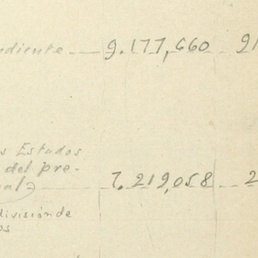 ndiente - 9.177,660 91
s Estados
del pre-
al) - 7,219,058 2
división de
os